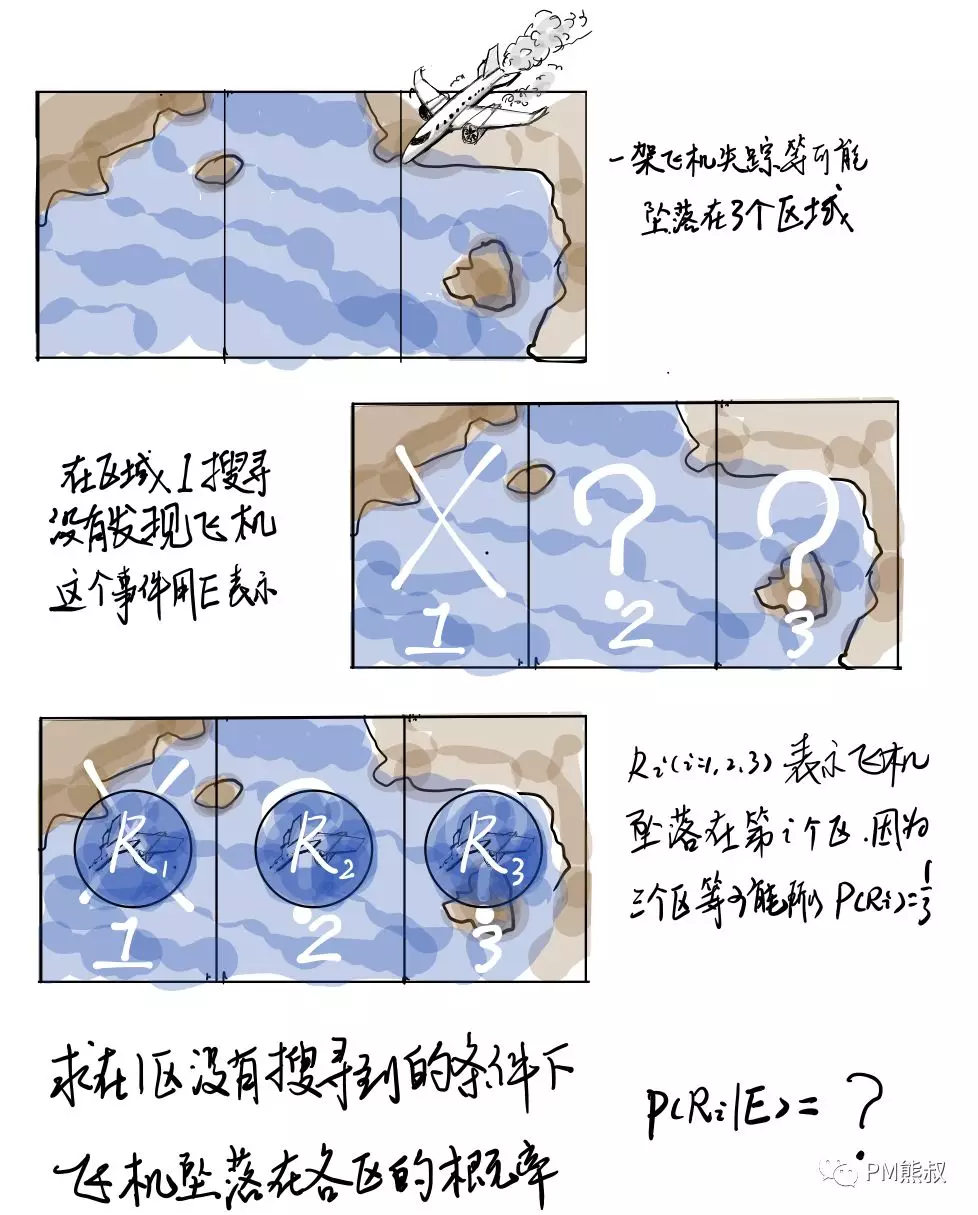 一架飞机失踪等可能
坠落在3个区域
在区域1搜寻
没有发现飞机
这个事件用E表示
1
2
3
Ri(i=1,2,3)表示飞机
坠落在第i个区.因为
三个区等可能所以P(Ri)=1/3
R1
R2
R3
1
2
3
求在1区没有搜寻到的条件下
飞机坠落在各区的概率
P(Ri|E)=?
PM熊叔